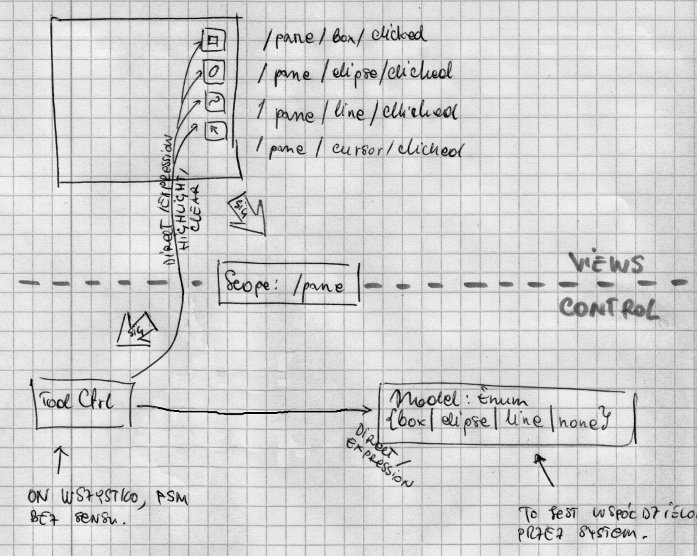 /pane/box/clicked
/pane/elipse/clicked
/pane/line/clicked
/pane/cursor/clicked
DIRECT/EXPRESSION
HIGHLIGHT/
CLEAR
SIG
VIEWS
Scope: /pane
CONTROL
SIG
Tool Ctrl
Model: Enum
{box|elipse|line|none}
DIRECT/
EXPRESSION
ON WSZYSTKO, FSM
BEZ SENSU.
TO JEST WSPÓŁDZIELO
PRZEZ SYSTEM.